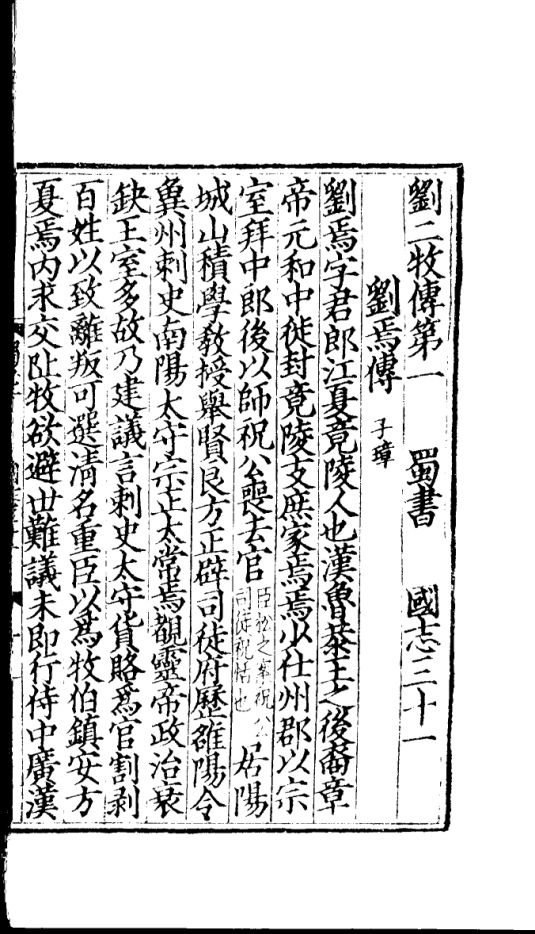 劉二牧傳第一 蜀書 國志三十一
劉焉傳 子璋
劉焉字君郎江夏竟陵人也漢魯恭王之後裔章
帝元和中徙封竟陵支庶家焉焉少仕州郡以宗
室拜中郎後以師祝公喪去官臣松之案祝公司徒祝恬也居陽
城山積學教授舉賢良方正辟司徒府歷雒陽令
兾州刺史南陽太守宗正太常焉覩靈帝政治衰
缺王室多故乃建議言刺史太守貨賂爲官割剥
百姓以致離叛可選清名重臣以爲牧伯鎮安方
夏焉内求交阯牧欲避世難議未即行侍中廣漢